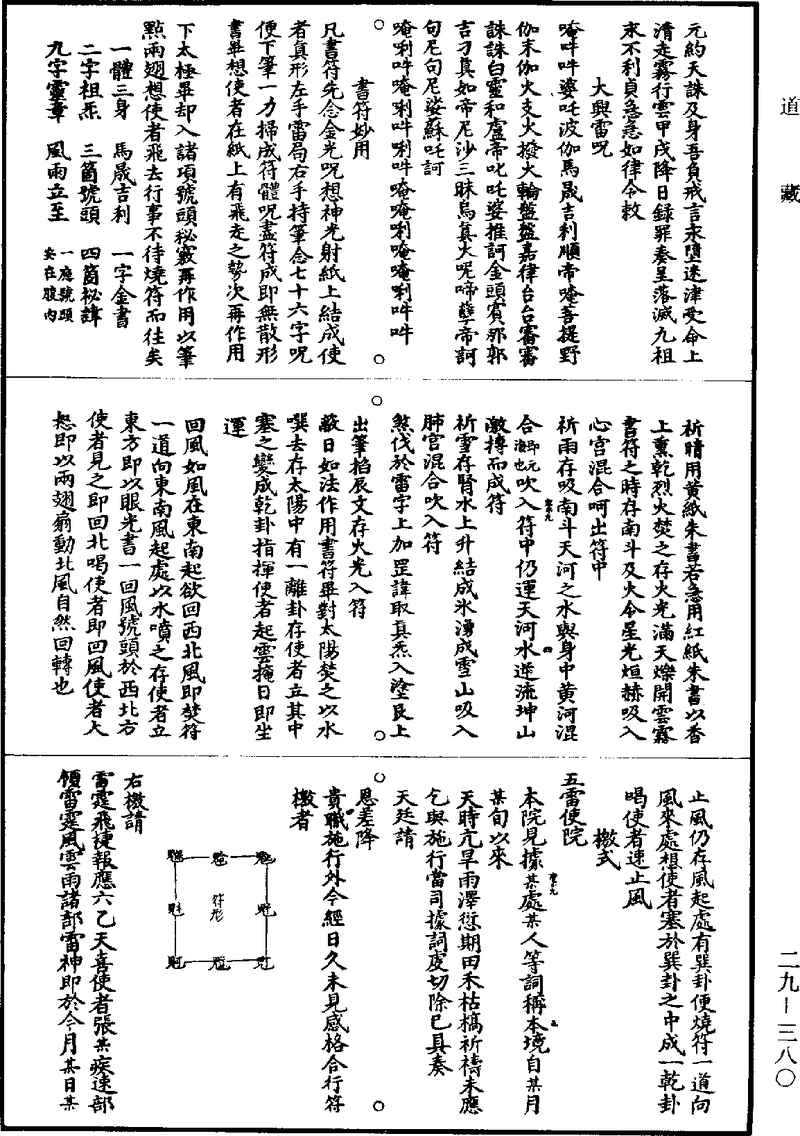 道藏
元約天誅及身吾負戒言永墮迷津受命上
清走霧行雲甲戌降日録罪奏呈落滅九祖
永不利貞急急如律令敕
大興雷呪
唵吽吽婆吒波伽馬晟吉利順帝唵菩提野
伽末伽火支火撥火輪盤盤嘉律台台審審
誅誅白靈和虛帝叱吒婆推訶金頭賓那郭
吉刁真如帝尼沙三昧烏真火呢啼孽帝訶
句尼句尼娑蘇吒訶
唵唎吽唵唎吽唎吽唵唵唎唵唵唎吽吽
書符妙用
凡書符先念金光呪想神光射紙上結成使
者真形左手雷局右手持筆念七十六字呪
便下筆一力掃成符體呪盡符成即無散形
書畢想使者在紙上有飛走之勢次再作用
下太極畢却入諸項號頭秘竅再作用以筆
點兩翅想使者飛去行事不待燒符而往矣
一體三身 馬晟吉利 一字金書
二字祖炁 三箇號頭 四箇祕諱
九字靈章 風雨立至 一應號頭安在腹内
祈晴用黄紙朱書若急用紅紙朱書以香
上熏乾烈火焚之存火光滿天爍開雲霧
書符之時存南斗及火令星光烜赫吸入
心宫混合呵出符中
祈雨存吸南斗天河之水與身中黄河混
合即元海也吹入符中仍運天河水逆流坤山
激搏而成符
祈雪存腎水上升結成氷湧成雪山吸入
肺宫混合吹入符
煞伐於雷字上加罡諱取真炁入塗艮上
出筆掐辰文存火光入符
蔽日如法作用書符畢對太陽焚之以水
噀去存太陽中有一離卦存使者立其中
塞之變成乾卦指揮使者起雲掩日即坐
運
回風如風在東南起欲回西北風即焚符
一道向東南風起處以水噴之存使者立
東方即以眼光書一回風號頭於西北方
使者見之即回北喝使者即回風使者大
怒即以兩翅扇動北風自然回轉也
止風仍存風起處有巽卦便燒符一道向
風來處想使者塞於巽卦之中成一乾卦
喝使者速止風
檄式
五雷使院
本院見據某處某人等詞稱本境自某月
某旬以來
天時亢旱雨澤愆期田禾枯槁祈禱未應
乞與施行當司據詞虔切除已具奏
天廷請
恩差降
貴職施行外今經日久未見感格合行符
檄者
符形
右檄請
雷霆飛捷報應六乙天喜使者張某疾速部
領雷霆風雲雨諸部雷神即於今月某日某
二九－三八〇